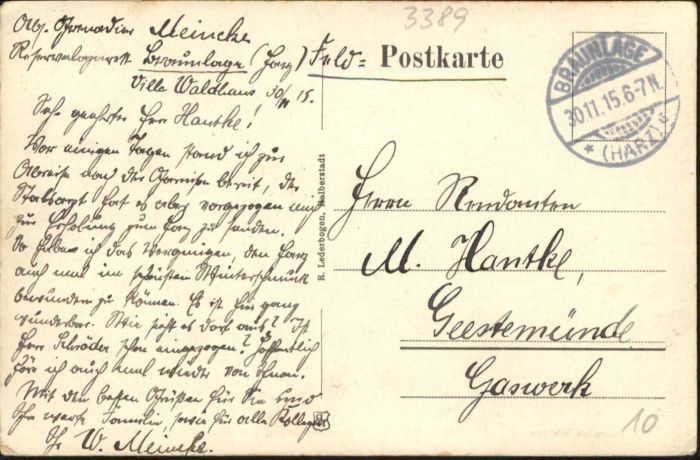 3389
Abs. Grenadier Meincke
Reservelazarett Braunlage (Harz)
Villa Waldhaus 30/11 15.
Feld= Postkarte
BRAUNLAGE
30.11.15.6-7N.
* (HARZ) *
Sehr geehrter Herr Hantke!
Vor einigen Tagen stand ich zur
Abreise nach der Garnison bereit, der
Stabsarzt hat es aber vorgezogen mich
zur Erholung zum Harz zu senden.
So habe ich das Vergnügen, den Harz
auch mal im schönsten Winterschmuck
bewundern zu können. Es ist hier ganz
wunderbar. Wie sieht es dort aus? Ist
Herr Schröder schon eingezogen? Hoffentlich
höre ich auch mal wieder von Ihnen.
Mit den besten Grüßen für Sie und
Ihre werte Familie, sowie für alle Kollegen
Ihr W. Meincke.
R. Lederbogen, Halberstadt
Herrn Rendanten
M. Hantke,
Geestemünde
Gaswerk
10